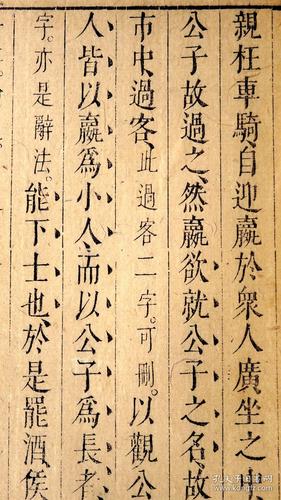 親枉車騎、自迎嬴於衆人廣坐之
公子故過之、然嬴欲就公子之名、故
市中、過客、此過客二字。可刪。以觀公
人皆以嬴爲小人、而以公子爲長者、
字。亦是辭法。能下士也、於是罷酒、侯